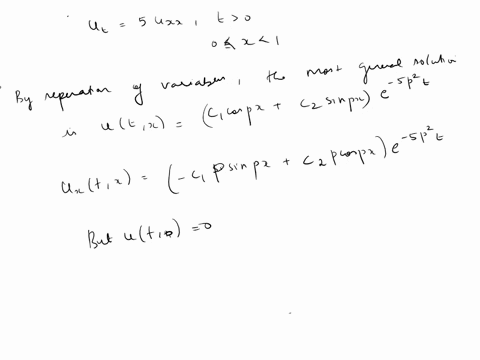 u_t = 5 u_xx, t > 0
0 ≤ x < 1
By reperation of variables, the most general solution
is u(t,x) = (c_1 cospx + c_2 sinpx) e^{-5p^2 t}
u_x(t,x) = (-c_1 p sinpx + c_2 p cospx) e^{-5p^2 t}
But u(t,0) = 0